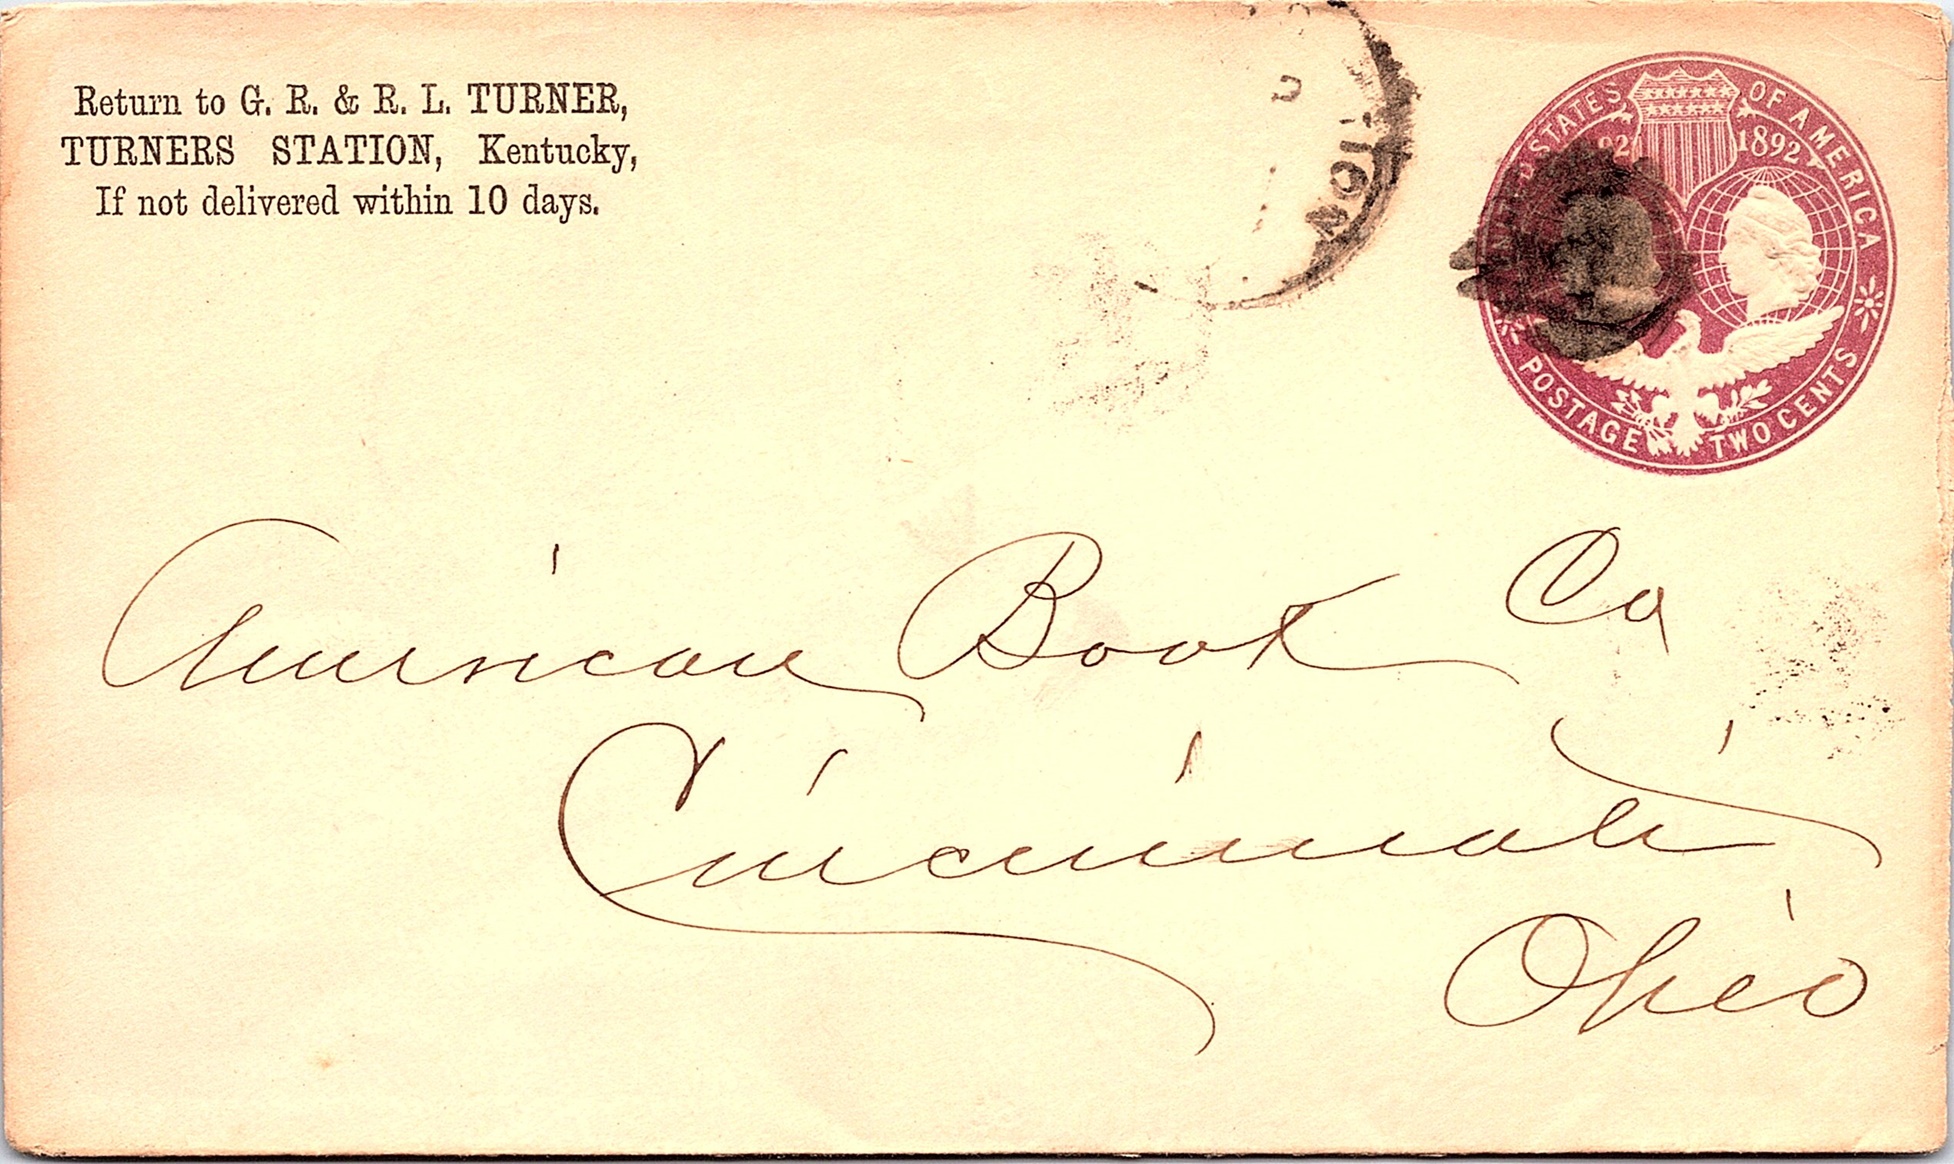 Return to G. R. & R. L. TURNER,
TURNERS STATION, Kentucky,
If not delivered within 10 days.
TION
STATES OF AMERICA
1892
POSTAGE TWO CENTS
American Book Co
Cincinnati
Ohio